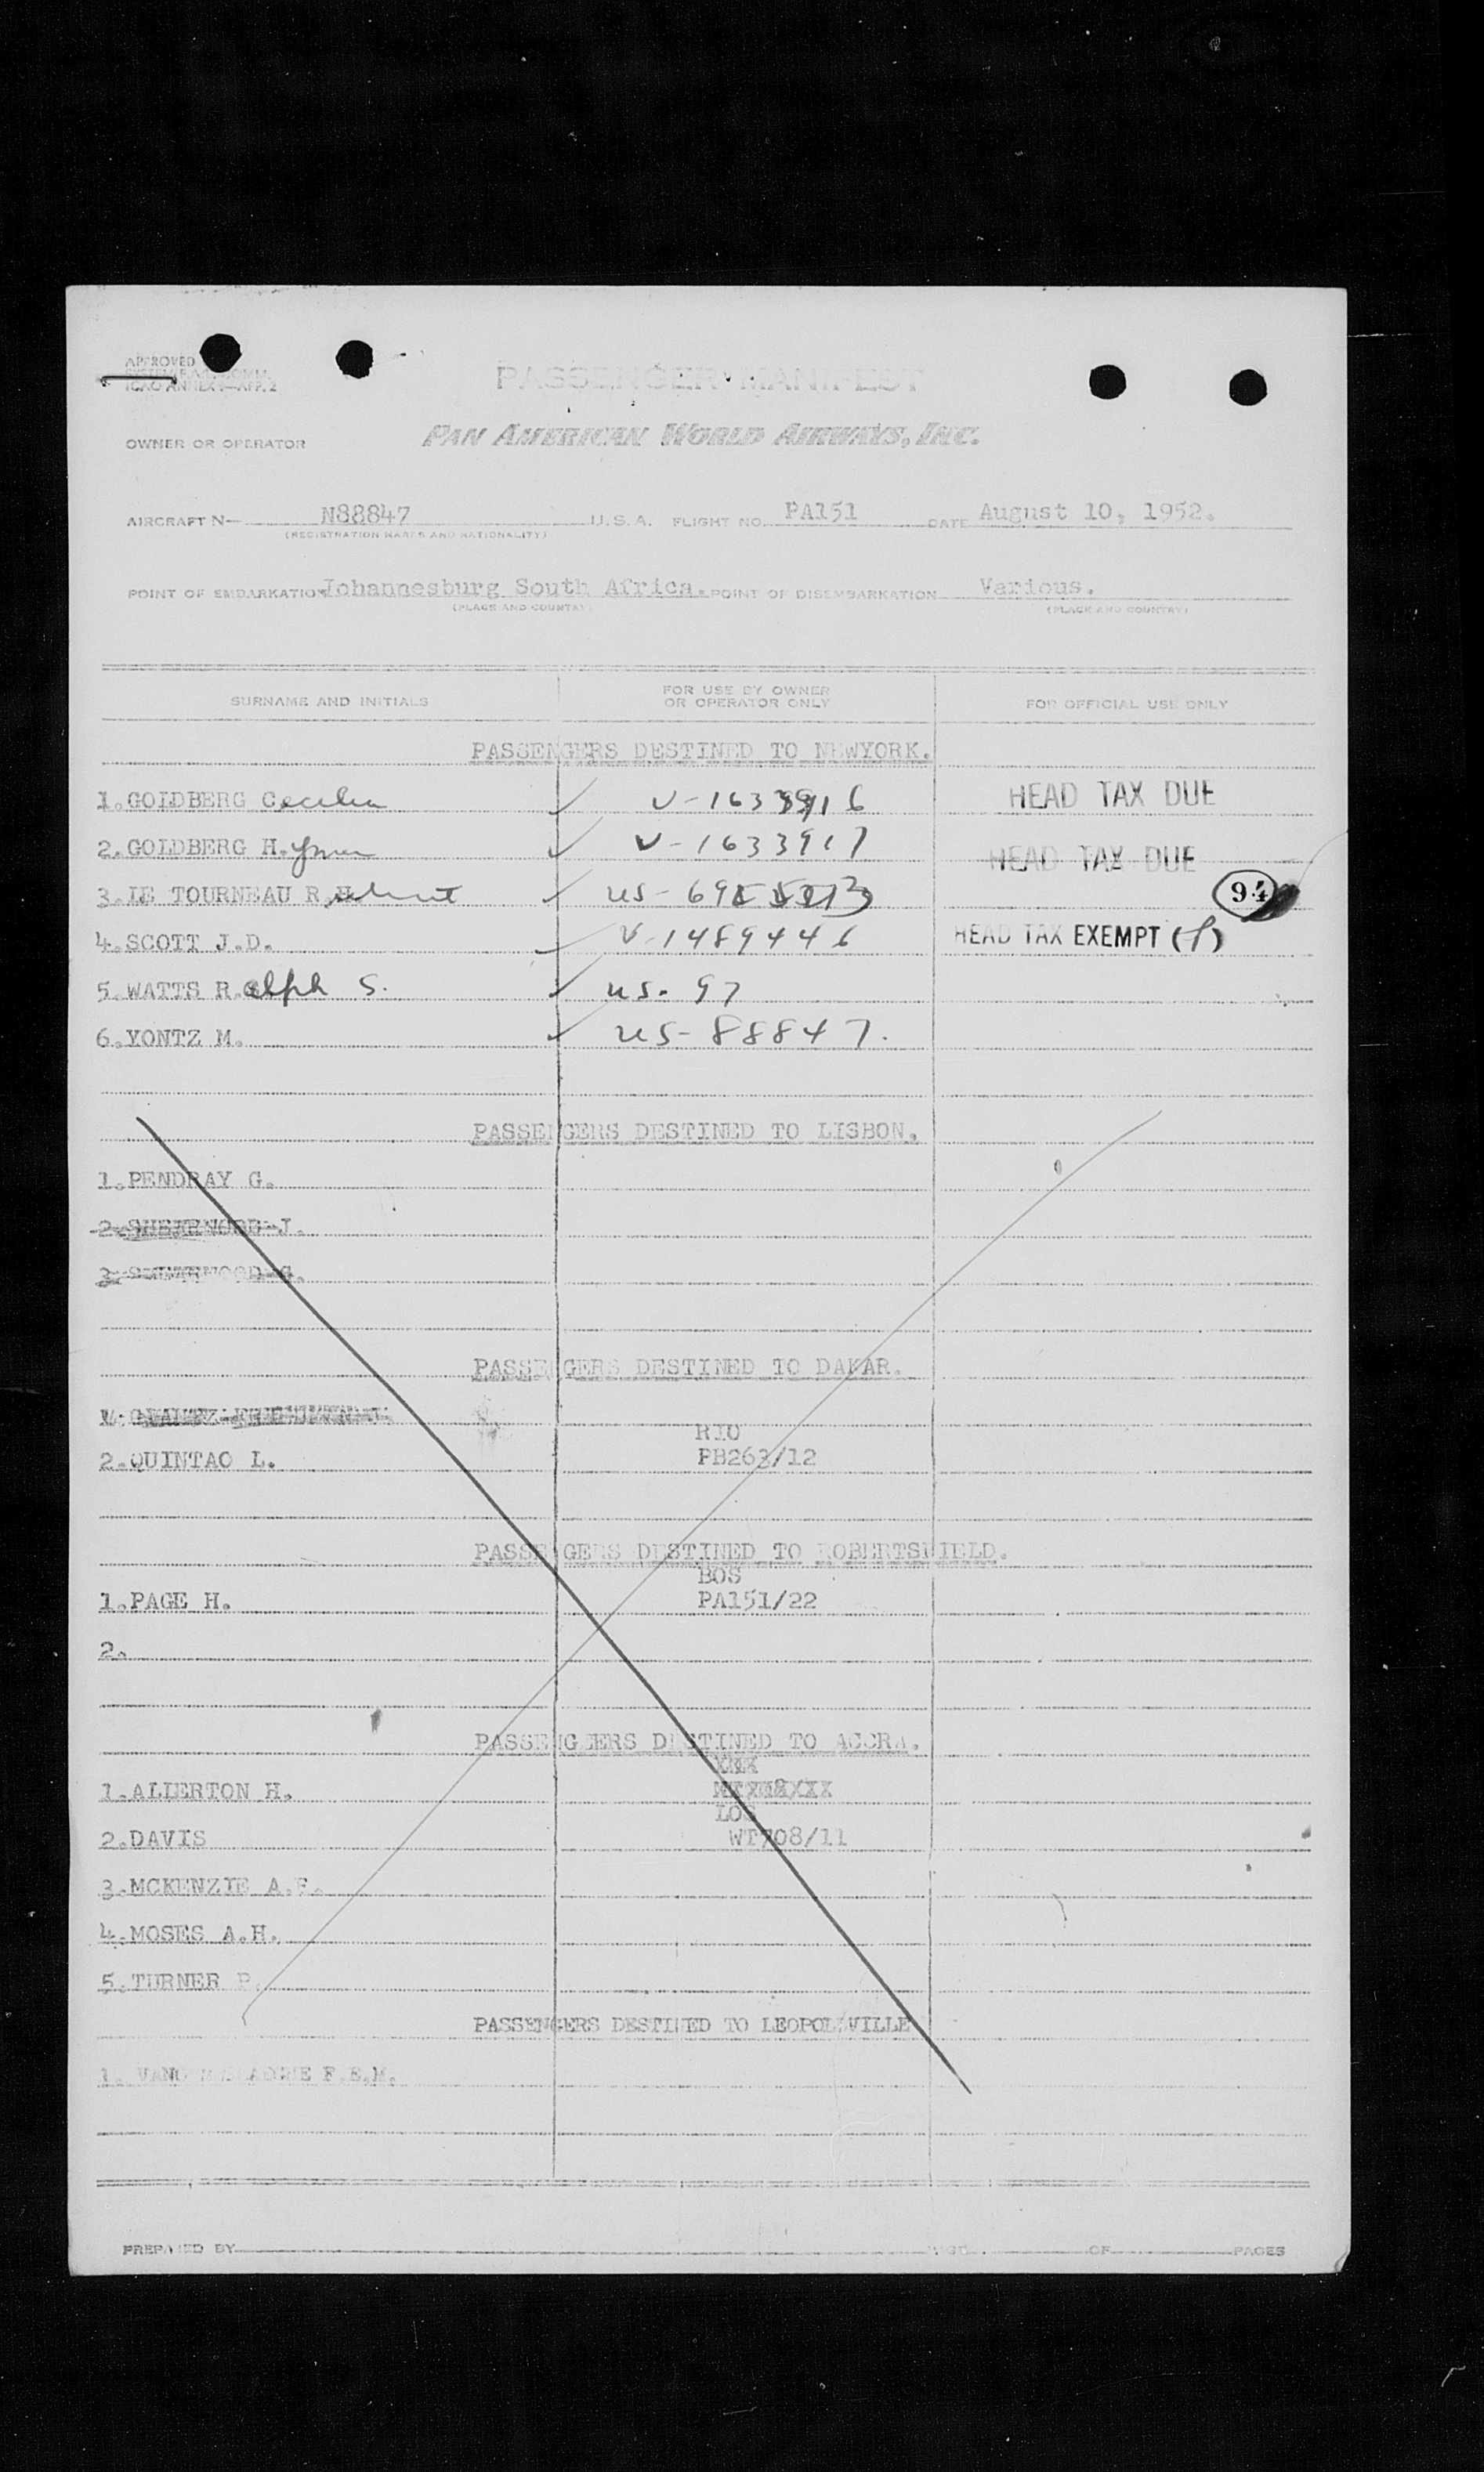 APPROVED
ICAO ANNEX 9—APP. 2
PASSENGER MANIFEST
OWNER OR OPERATOR PAN AMERICAN WORLD AIRWAYS, INC.
AIRCRAFT N— N88847 U.S.A. FLIGHT NO. PA151 DATE August 10, 1952.
(REGISTRATION MARKS AND NATIONALITY)
POINT OF EMBARKATION Johannesburg South Africa. POINT OF DISEMBARKATION Various.
(PLACE AND COUNTRY) (PLACE AND COUNTRY)
SURNAME AND INITIALS FOR USE BY OWNER OR OPERATOR ONLY FOR OFFICIAL USE ONLY
PASSENGERS DESTINED TO NEWYORK.
1.GOLDBERG Cecilia V-1633916 HEAD TAX DUE
2.GOLDBERG H.yman V-1633917 HEAD TAX DUE
3.LE TOURNEAU R. US- 94
4.SCOTT J.D. V-1489446 HEAD TAX EXEMPT (f)
5.WATTS R.alph S. US- 97
6.YONTZ M. US-88847.
PASSENGERS DESTINED TO LISBON.
1.PENDRAY G.
2.SHERWOOD J.
3.SHERWOOD G.
PASSENGERS DESTINED TO DAKAR.
RIO
2.QUINTAO L. PB263/12
PASSENGERS DESTINED TO ROBERTSFIELD.
BOS
1.PAGE H. PA151/22
2.
PASSENGEERS DESTINED TO ACCRA.
1.ALLERTON H.
LOS
2.DAVIS WT708/11
3.MCKENZIE A.F.
4.MOSES A.H.
5.TURNER P.
PASSENGERS DESTINED TO LEOPOLDVILLE
1. F.E.M.
PREPARED BY PAGE OF PAGES